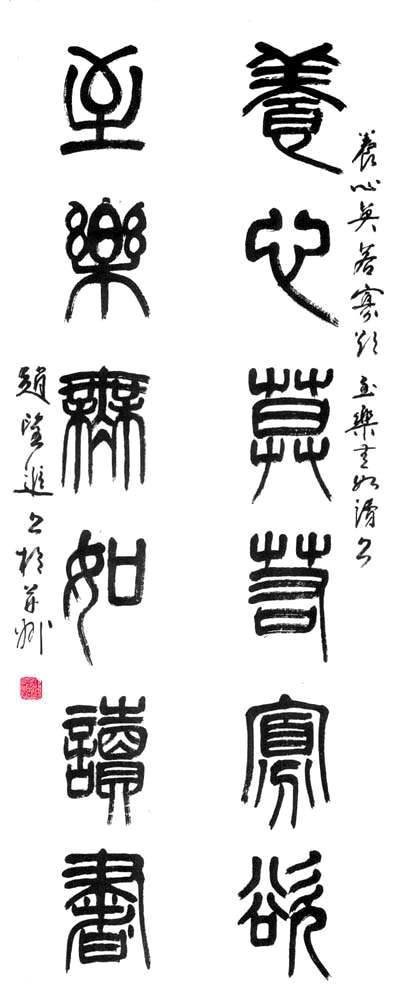 養心莫若寡欲
養心莫若寡欲至樂無如讀書
至樂無如讀書
趙 進書於并州